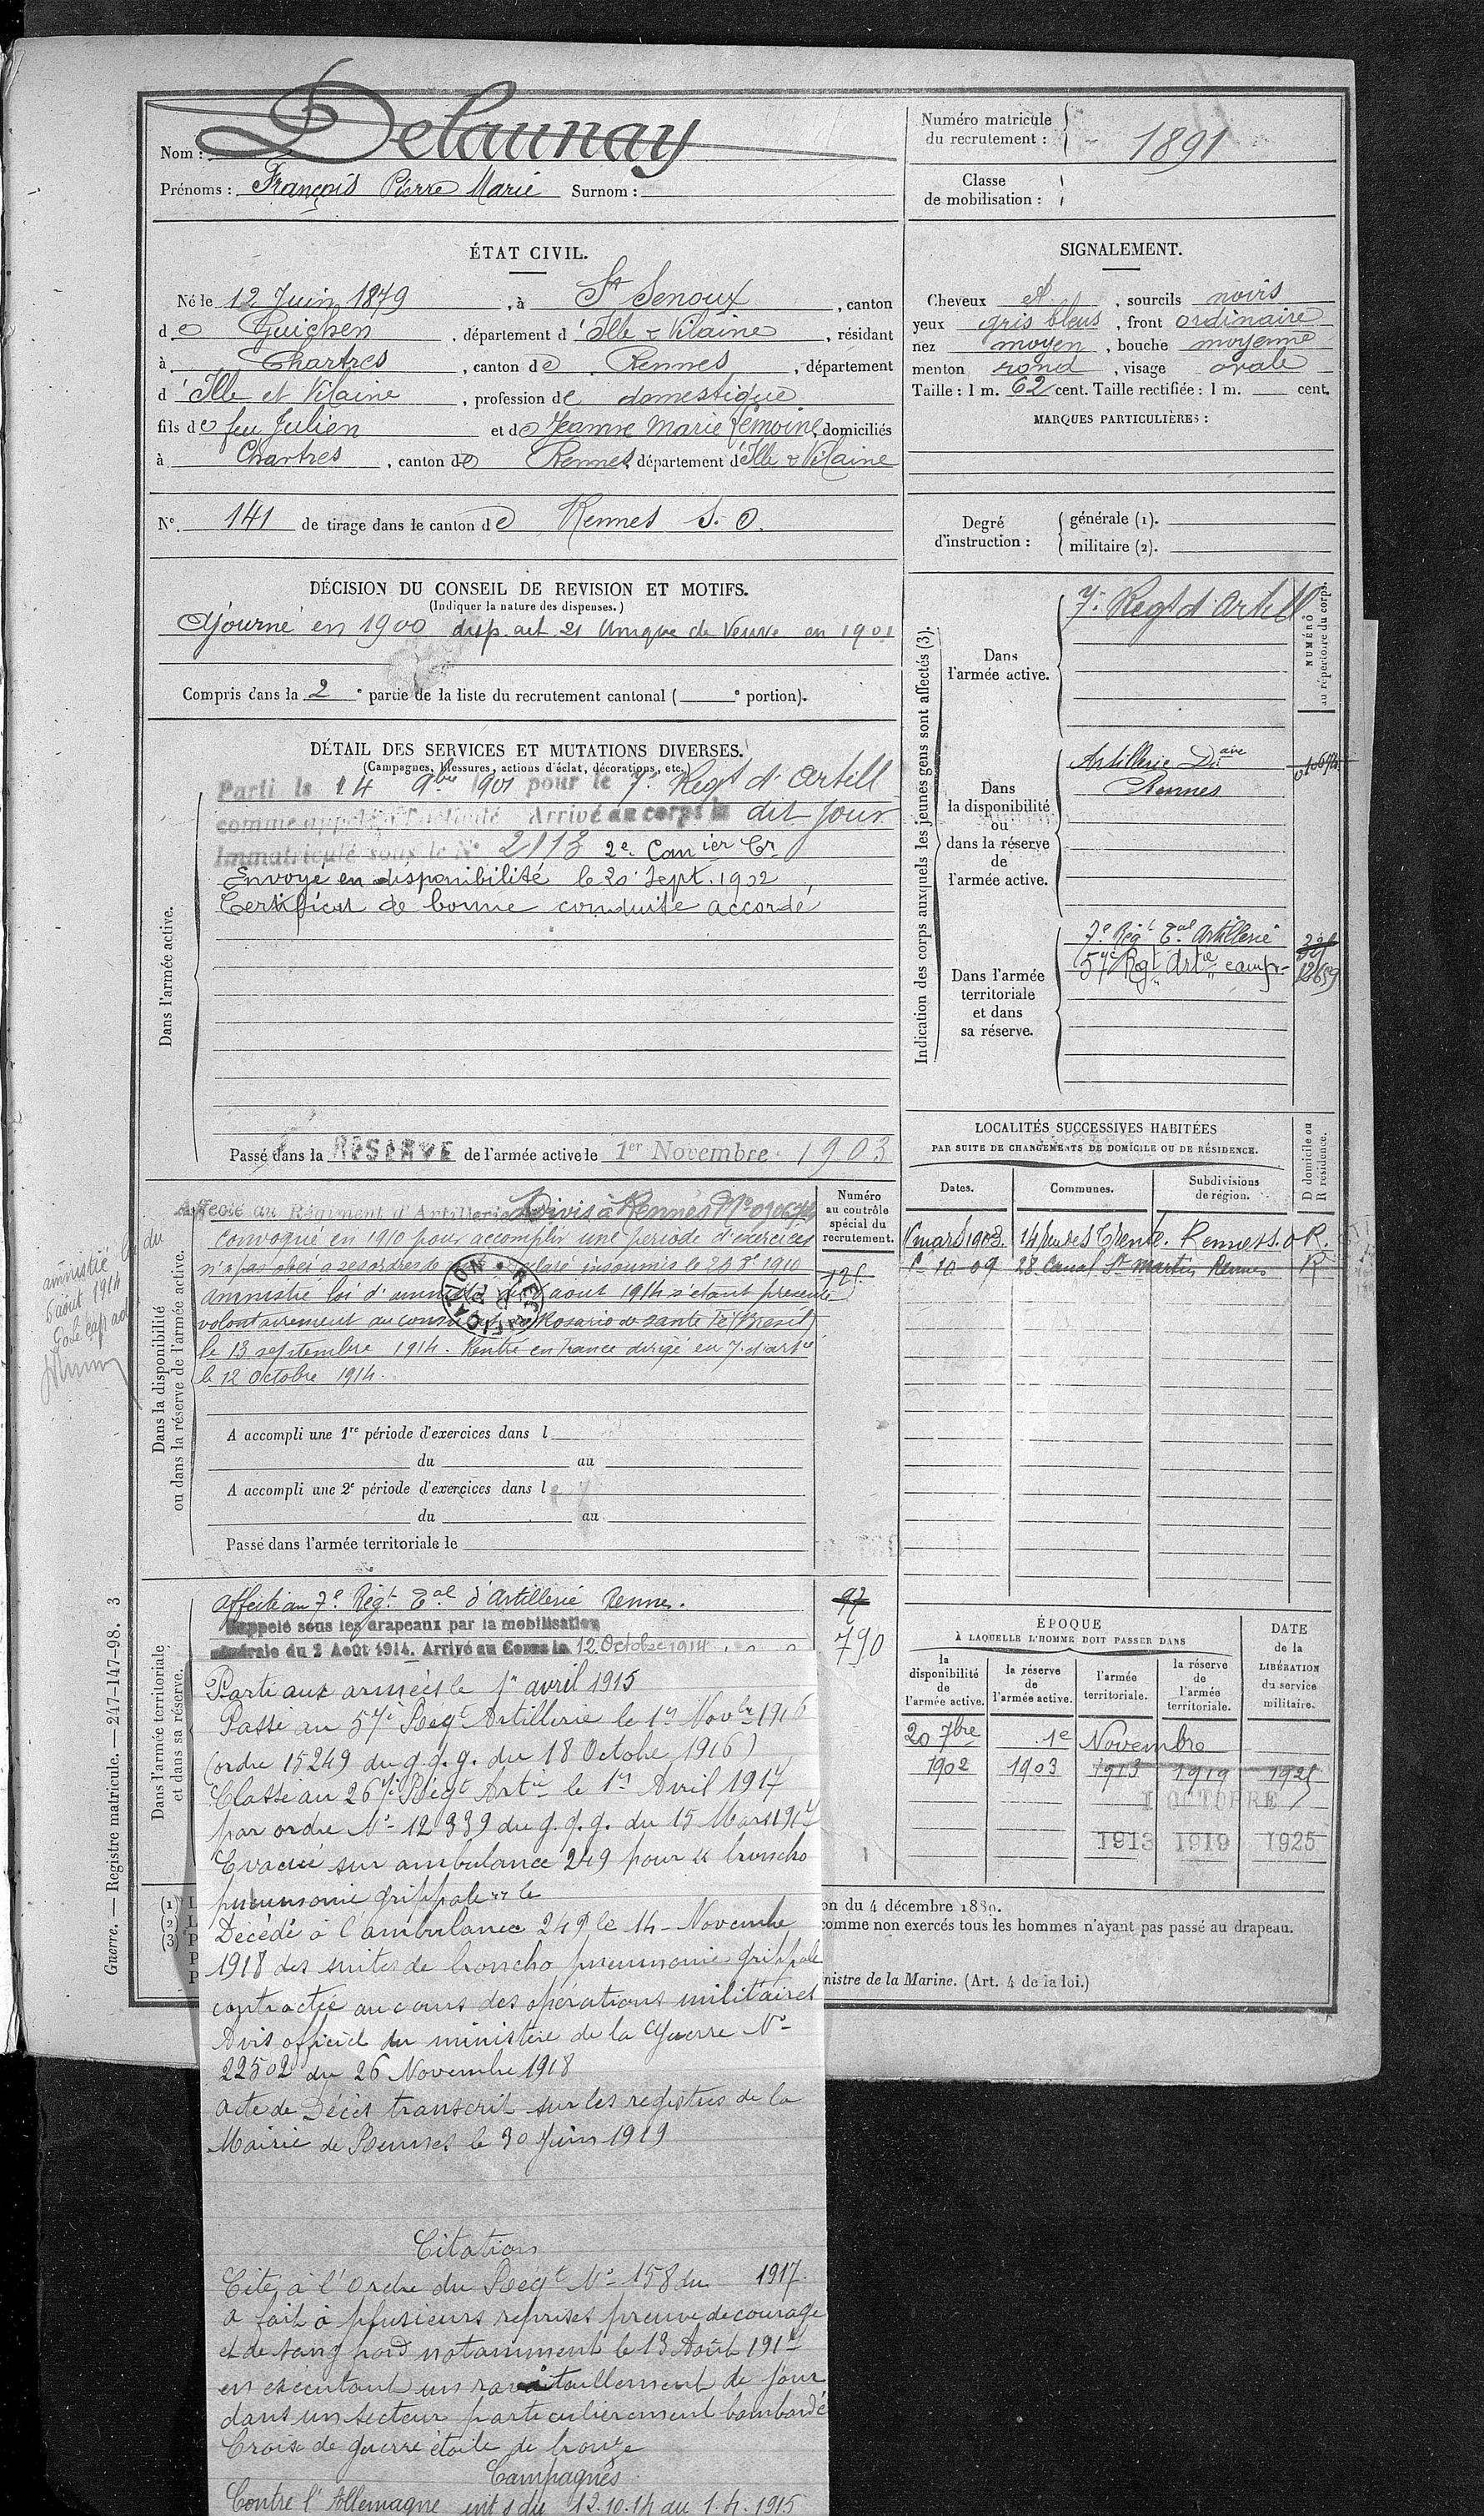 Nom : Delaunay
Prénoms : François Pierre Marie Surnom :
Numéro matricule du recrutement : 1891
Classe de mobilisation :
ÉTAT CIVIL.
Né le 12 Juin 1879, à St Senoux, canton
de Guichen, département d'Ille & Vilaine, résidant
à Chartres, canton de Rennes, département
d'Ille et Vilaine, profession de domestique
fils de feu Julien et de Jeanne Marie Lemoine, domiciliés
à Chartres, canton de Rennes, département d'Ille & Vilaine
N°. 141 de tirage dans le canton de Rennes S. O.
SIGNALEMENT.
Cheveux et, sourcils noirs
yeux gris bleus, front ordinaire
nez moyen, bouche moyenne
menton rond, visage ovale
Taille : 1 m. 62 cent. Taille rectifiée : 1 m. cent.
MARQUES PARTICULIÈRES :
Degré d'instruction : générale (1).
militaire (2).
DÉCISION DU CONSEIL DE REVISION ET MOTIFS.
(Indiquer la nature des dispenses.)
Ajourné en 1900 disp. art. 21 Unique de Veuve en 1901
Compris dans la 2e partie de la liste du recrutement cantonal ( e portion).
DÉTAIL DES SERVICES ET MUTATIONS DIVERSES.
(Campagnes, blessures, actions d'éclat, décorations, etc.)
Dans l'armée active.
Parti le 14 9bre 1901 pour le 7e Regt d'Artill
comme appelé à l'activité Arrivé au corps le dit jour
Immatriculé sous le N° 2113 2e Canier Cr
Envoyé en disponibilité le 20 Sept. 1902
Certificat de bonne conduite accordé
Passé dans la RÉSERVE de l'armée active le 1er Novembre 1903
Indication des corps auxquels les jeunes gens sont affectés (3).
NUMÉRO au répertoire du corps.
Dans l'armée active.
7e Regt d'Artill
Dans la disponibilité ou dans la réserve de l'armée active.
Artillerie Dre
Rennes
Dans l'armée territoriale et dans sa réserve.
7e Régt Tal Artillerie
57e Rgt Artie camp.
12659
LOCALITÉS SUCCESSIVES HABITÉES
PAR SUITE DE CHANGEMENTS DE DOMICILE OU DE RÉSIDENCE.
Dates. Communes. Subdivisions de région. D domicile ou R résidence.
mars 1903. 14 rue des Trente. Rennes S. O R.
10-09 28 Canal St Martin Rennes R
Dans la disponibilité ou dans la réserve de l'armée active.
Numéro au contrôle spécial du recrutement.
Affecté au Régiment d'Artillerie Divis à Rennes
Convoqué en 1910 pour accomplir une période d'exercices
n'a pas obéi à ses ordres de déclaré insoumis le 1910
amnistié loi d'amnistie du 5 août 1914 s'étant présenté
volontairement au consulat Rosario de Santa Fé (Brésil)
le 13 septembre 1914. Rentré en France dirigé en 7e d'artie
le 12 octobre 1914.
RECTIFICATION
amnistié loi du
5 août 1914
A accompli une 1re période d'exercices dans l
du au
A accompli une 2e période d'exercices dans l
du au
Passé dans l'armée territoriale le
Dans l'armée territoriale et dans sa réserve.
Affecté au 7e Régt Tal d'Artillerie Rennes.
97
Rappelé sous les drapeaux par la mobilisation
générale du 2 Août 1914. Arrivé au Corps le 12 Octobre 1914
790
Parti aux armées le 1er avril 1915
Passé au 57e Regt Artillerie le 1er Novbre 1916
(ordre 15249 du g.q.g. du 18 Octobre 1916)
Classé au 267e Régt Artie le 1er Avril 1917
par ordre N° 12339 du g.q.g. du 15 Mars 1917
Evacué sur ambulance 249 pour "broncho
pneumonie grippale" le
Décédé à l'ambulance 249 le 14 Novembre
1918 des suites de broncho pneumonie grippale
contractée au cours des opérations militaires
Avis officiel du ministère de la Guerre N°
22502 du 26 Novembre 1918
acte de Décès transcrit sur les registres de la
Mairie de Rennes le 30 Juin 1919
Citation
Cité à l'Ordre du Regt N° 158 du 1917.
a fait à plusieurs reprises preuve de courage
et de sang froid notamment le 13 Août 1917
en exécutant un ravitaillement de jour
dans un secteur particulièrement bombardé
Croix de guerre étoile de bronze
Campagnes
Contre l'Allemagne intr du 12.10.14 au 1.4.1915
ÉPOQUE
À LAQUELLE L'HOMME DOIT PASSER DANS
la disponibilité de l'armée active. la réserve de l'armée active. l'armée territoriale. la réserve de l'armée territoriale. DATE de la LIBÉRATION du service militaire.
20 7bre 1e Novembre
1902 1903 1913 1919 1925
1 OCTOBRE
1913 1919 1925
(1)
(2)
(3)
on du 4 décembre 1889.
comme non exercés tous les hommes n'ayant pas passé au drapeau.
nistre de la Marine. (Art. 4 de la loi.)
Guerre. — Registre matricule. — 247-147-98. 3